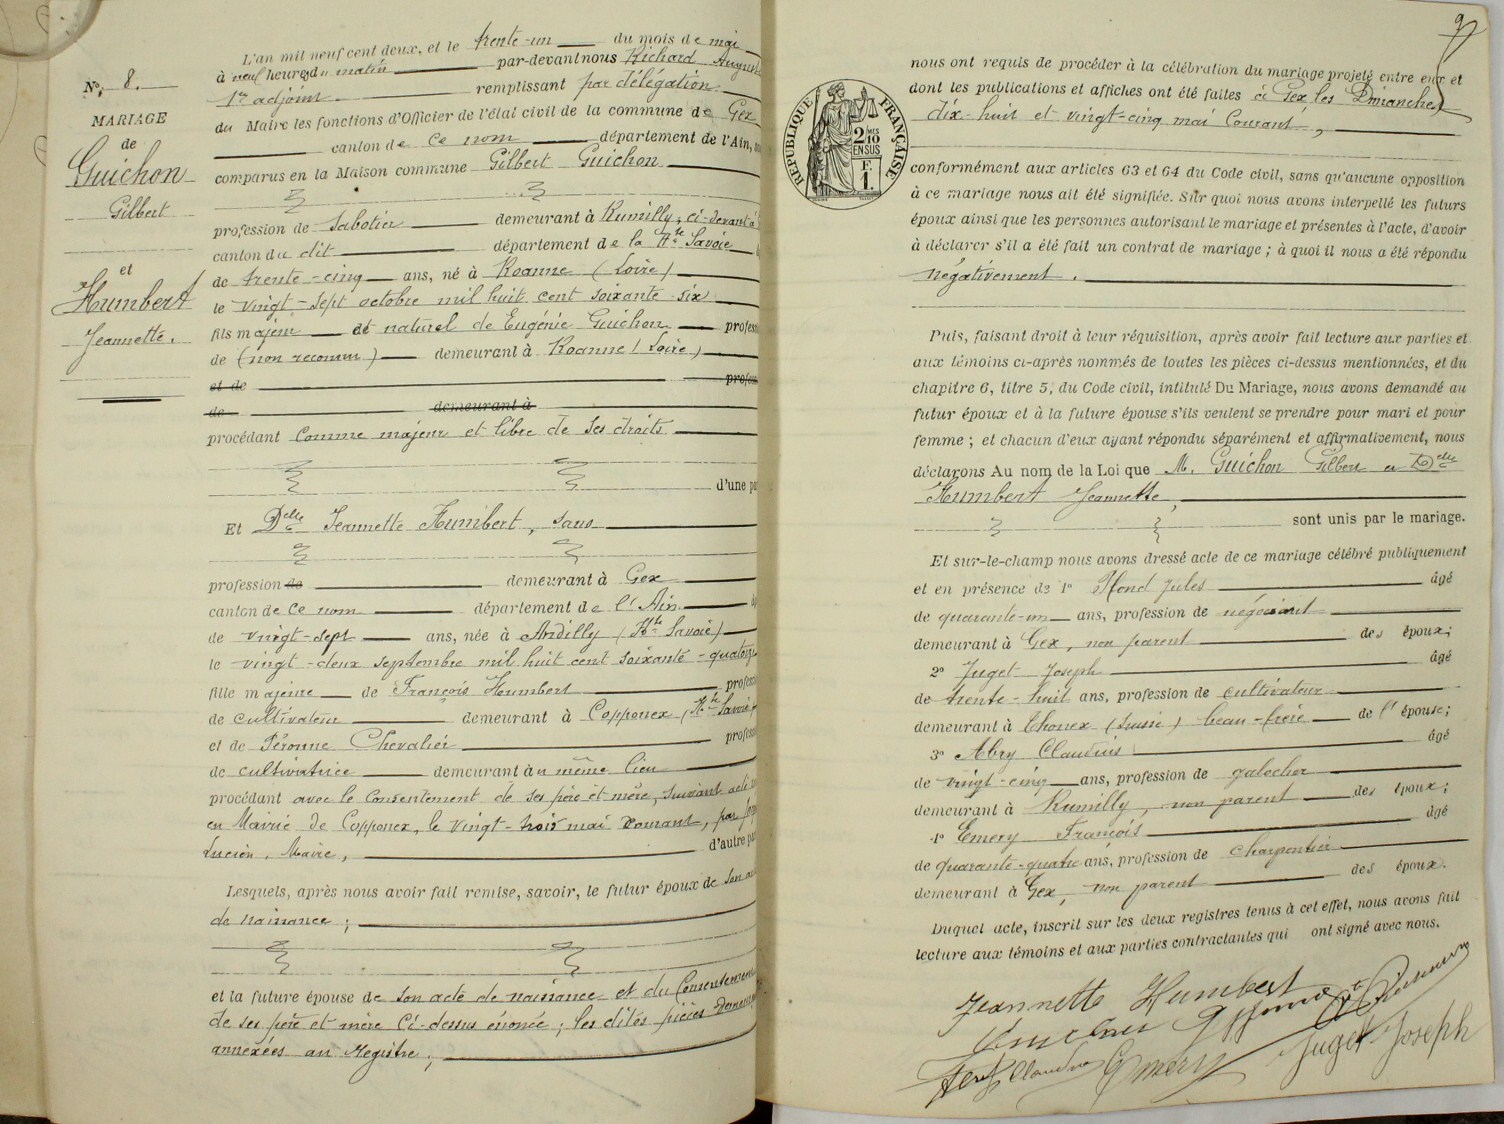 N° 8.
MARIAGE
de
Guichon
Gilbert
et
Humbert
Jeannette.
L'an mil neuf cent deux, et le trente-un du mois de mai
à neuf heures du matin par-devant nous Richard August
1er adjoint remplissant par délégation
du Maire les fonctions d'Officier de l'état civil de la commune de Gex
canton de ce nom département de l'Ain,
comparus en la Maison commune Gilbert Guichon
profession de sabotier demeurant à Rumilly, ci-devant à
canton du dit département de la Hte Savoie
de trente-cinq ans, né à Roanne (Loire)
le vingt-sept octobre mil huit cent soixante six
fils majeur et naturel de Eugénie Guichon profess
de (non reconnu) demeurant à Roanne (Loire)
et de profess
de demeurant à
procédant comme majeur et libre de ses droits
d'une pa
Et Delle Jeannette Humbert, sans
profession de demeurant à Gex
canton de ce nom département de l'Ain
de vingt-sept ans, née à Andilly (Hte Savoie)
le vingt-deux septembre mil huit cent soixante-quatorze
fille majeure de François Humbert profess
de cultivateur demeurant à Copponex (Hte Savoie)
et de Péronne Chevalier profess
de cultivatrice demeurant au même lieu
procédant avec le consentement de ses père et mère, suivant acte
en Mairie de Copponex, le vingt-trois mai courant, par
Lucien, Maire, d'autre pa
Lesquels, après nous avoir fait remise, savoir, le futur époux de son ac
de naissance ;
et la future épouse de son acte de naissance et du Consentement
de ses père et mère ci-dessus énoncé ; les dites pièces demeur
annexées au Registre ;
9
RÉPUBLIQUE FRANÇAISE
2/10 MES
EN SUS
F.
1.
nous ont requis de procéder à la célébration du mariage projeté entre eux et
dont les publications et affiches ont été faites à Gex les Dimanches
dix-huit et vingt-cinq mai Courant,
conformément aux articles 63 et 64 du Code civil, sans qu'aucune opposition
à ce mariage nous ait été signifiée. Sur quoi nous avons interpellé les futurs
époux ainsi que les personnes autorisant le mariage et présentes à l'acte, d'avoir
à déclarer s'il a été fait un contrat de mariage ; à quoi il nous a été répondu
négativement.
Puis, faisant droit à leur réquisition, après avoir fait lecture aux parties et
aux témoins ci-après nommés de toutes les pièces ci-dessus mentionnées, et du
chapitre 6, titre 5, du Code civil, intitulé Du Mariage, nous avons demandé au
futur époux et à la future épouse s'ils veulent se prendre pour mari et pour
femme ; et chacun d'eux ayant répondu séparément et affirmativement, nous
déclarons Au nom de la Loi que M. Guichon Gilbert et Delle
Humbert Jeannette,
sont unis par le mariage.
Et sur-le-champ nous avons dressé acte de ce mariage célébré publiquement
et en présence de 1° Jules âgé
de quarante-un ans, profession de négociant
demeurant à Gex, non parent des époux;
2° Juget Joseph âgé
de trente-huit ans, profession de cultivateur
demeurant à Thonex (Suisse) beau-frère de l'épouse;
3° Abry Claudius âgé
de vingt-cinq ans, profession de galocher
demeurant à Rumilly, non parent des époux;
4° Emery François âgé
de quarante-quatre ans, profession de charpentier
demeurant à Gex, non parent des époux.
Duquel acte, inscrit sur les deux registres tenus à cet effet, nous avons fait
lecture aux témoins et aux parties contractantes qui ont signé avec nous.
Jeannette Humbert
Claudius Emery Juget Joseph